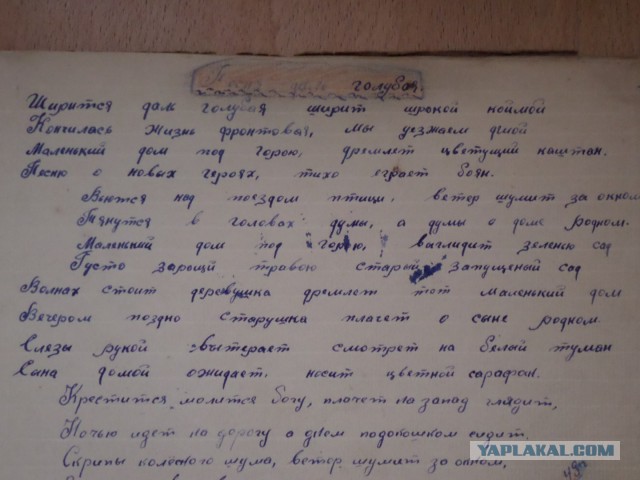 Песня даль голубая
Ширится даль голубая ширит широкой коймой
Кончилась жизнь фронтовая, мы уезжаем дмой
Маленький дом под горою, дремлет цветущий каштан.
Песню о новых героях, тихо еграет боян.
Вьются над поездом птици, ветер шумит за окном
Тянутся в головах думы, а думы о доме родном.
Маленький дом под горою, выглидит зеленью сад
Густо заросщй травою старый запущеный сад
Волнах стоит деревушка дремлет тот маленький дом
Вечером поздно старушка плачет о сыне родном.
Слезы рукой вытерает смотрет на белый туман
Сына домой ожидает. носит цветной сарафон.
Крестится, молится богу, плачет на запад глядит,
Ночью идет на дорогу а днем подокошком сидит.
Скрипы колёсного шума, ветер шумит за окном,
YAPLAKAL.COM